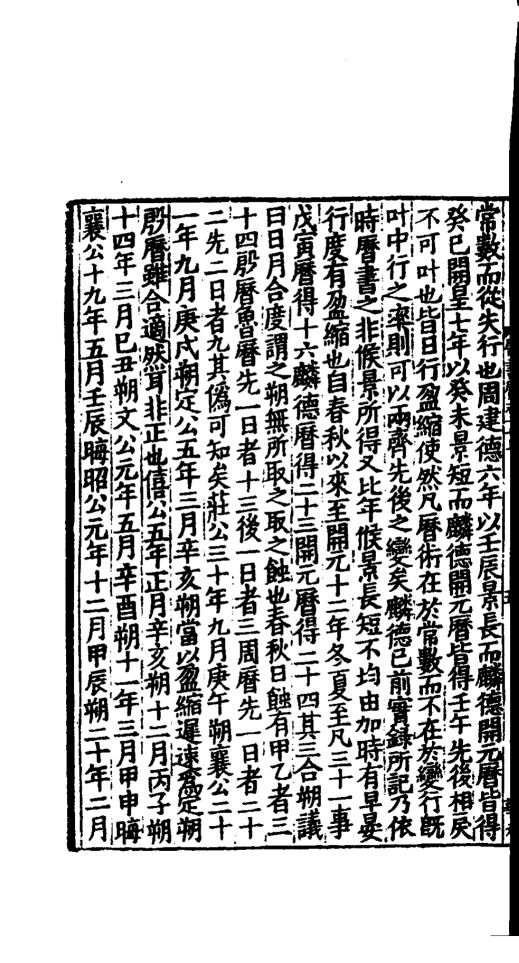 常數而從失行也周建德六年以壬辰景長而麟德開元曆皆得
癸巳開皇七年以癸未景短而麟德開元曆皆得壬午先後相戾
不可叶也皆日行盈縮使然凡曆術在於常數而不在於變行既
叶中行之率則可以兩齊先後之變矣麟德已前實錄所記乃依
時曆書之非候景所得又比年候景長短不均由加時有早晏
行度有盈縮也自春秋以來至開元十二年冬夏至凡三十一事
戊寅曆得十六麟德曆得二十三開元曆得二十四其三合朔議
曰日月合度謂之朔無所取之取之蝕也春秋日蝕有甲乙者三
十四殷曆魯曆先一日者十三後一日者三周曆先一日者二十
二先二日者九其僞可知矣莊公三十年九月庚午朔襄公二十
一年九月庚戌朔定公五年三月辛亥朔當以盈縮遲速爲定朔
殷曆雖合適然耳非正也僖公五年正月辛亥朔十二月丙子朔
十四年三月己丑朔文公元年五月辛酉朔十一年三月甲申晦
襄公十九年五月壬辰晦昭公元年十二月甲辰朔二十年二月